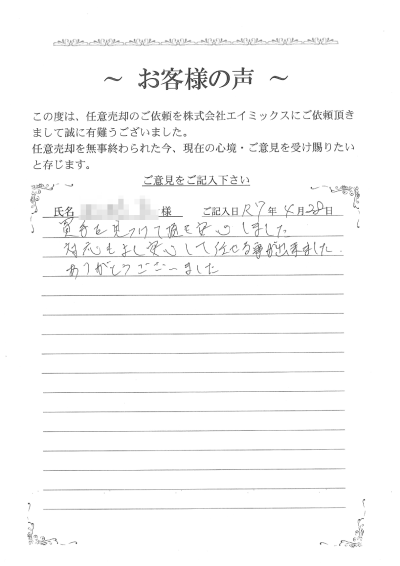 ～ お客様の声 ～
この度は、任意売却のご依頼を株式会社エイミックスにご依頼頂き
まして誠に有難うございました。
任意売却を無事終わられた今、現在の心境・ご意見を受け賜りたい
と存じます。
ご意見をご記入下さい
氏名 様 ご記入日 R7年 4月28日
買手を見つけて 安心しました
対応もよし安心して任せる事が出来ました.
ありがとうございました